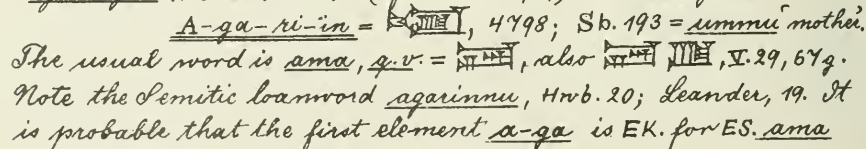 A-ga-ri-in = , 4798; Sb. 193 = ummu 'mother'.
The usual word is ama, q.v. = , also , V. 29, 67g.
Note the Semitic loanword agarinnu, Hwb. 20; Leander, 19. It
is probable that the first element a-ga is EK. for ES. ama